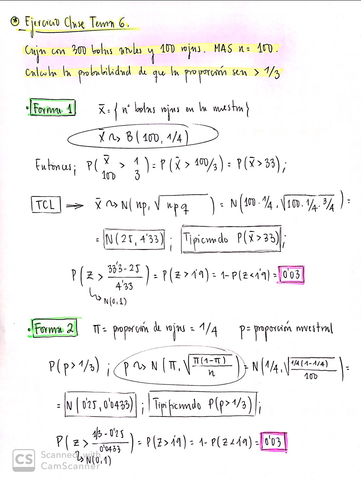 * Ejercicio Clase Tema 6.
Caja con 300 bolas azules y 100 rojas. MAS n = 100.
Calcula la probabilidad de que la proporción sea > 1/3
• Forma 1 x̄ = { nº bolas rojas en la muestra }
x̄ ~> B(100, 1/4)
Entonces; P( x̄/100 > 1/3 ) = P( x̄ > 100/3 ) = P( x̄ > 33 );
TCL ⟹ x̄ ~> N( np, √npq ) = N( 100·1/4, √100·1/4·3/4 ) =
= N(25, 4'33) ; Tipificando P(x̄ > 33) ;
P( Z > (33'3 - 25)/4'33 ) = P( Z > 1'9 ) = 1 - P( Z < 1'9 ) = 0'03
↳ N(0,1)
• Forma 2 π = proporción de rojas = 1/4 p = proporción muestral
P( p > 1/3 ) ; p ~> N( π, √(π(1-π)/n) ) = N( 1/4, √(1/4(1-1/4)/100) ) =
= N( 0'25, 0'0433 ) ; Tipificando P( p > 1/3 ) ;
P( Z > (1/3 - 0'25)/0'0433 ) = P( Z > 1'9 ) = 1 - P( Z < 1'9 ) = 0'03
↳ N(0,1)
CS Scanned with
CamScanner